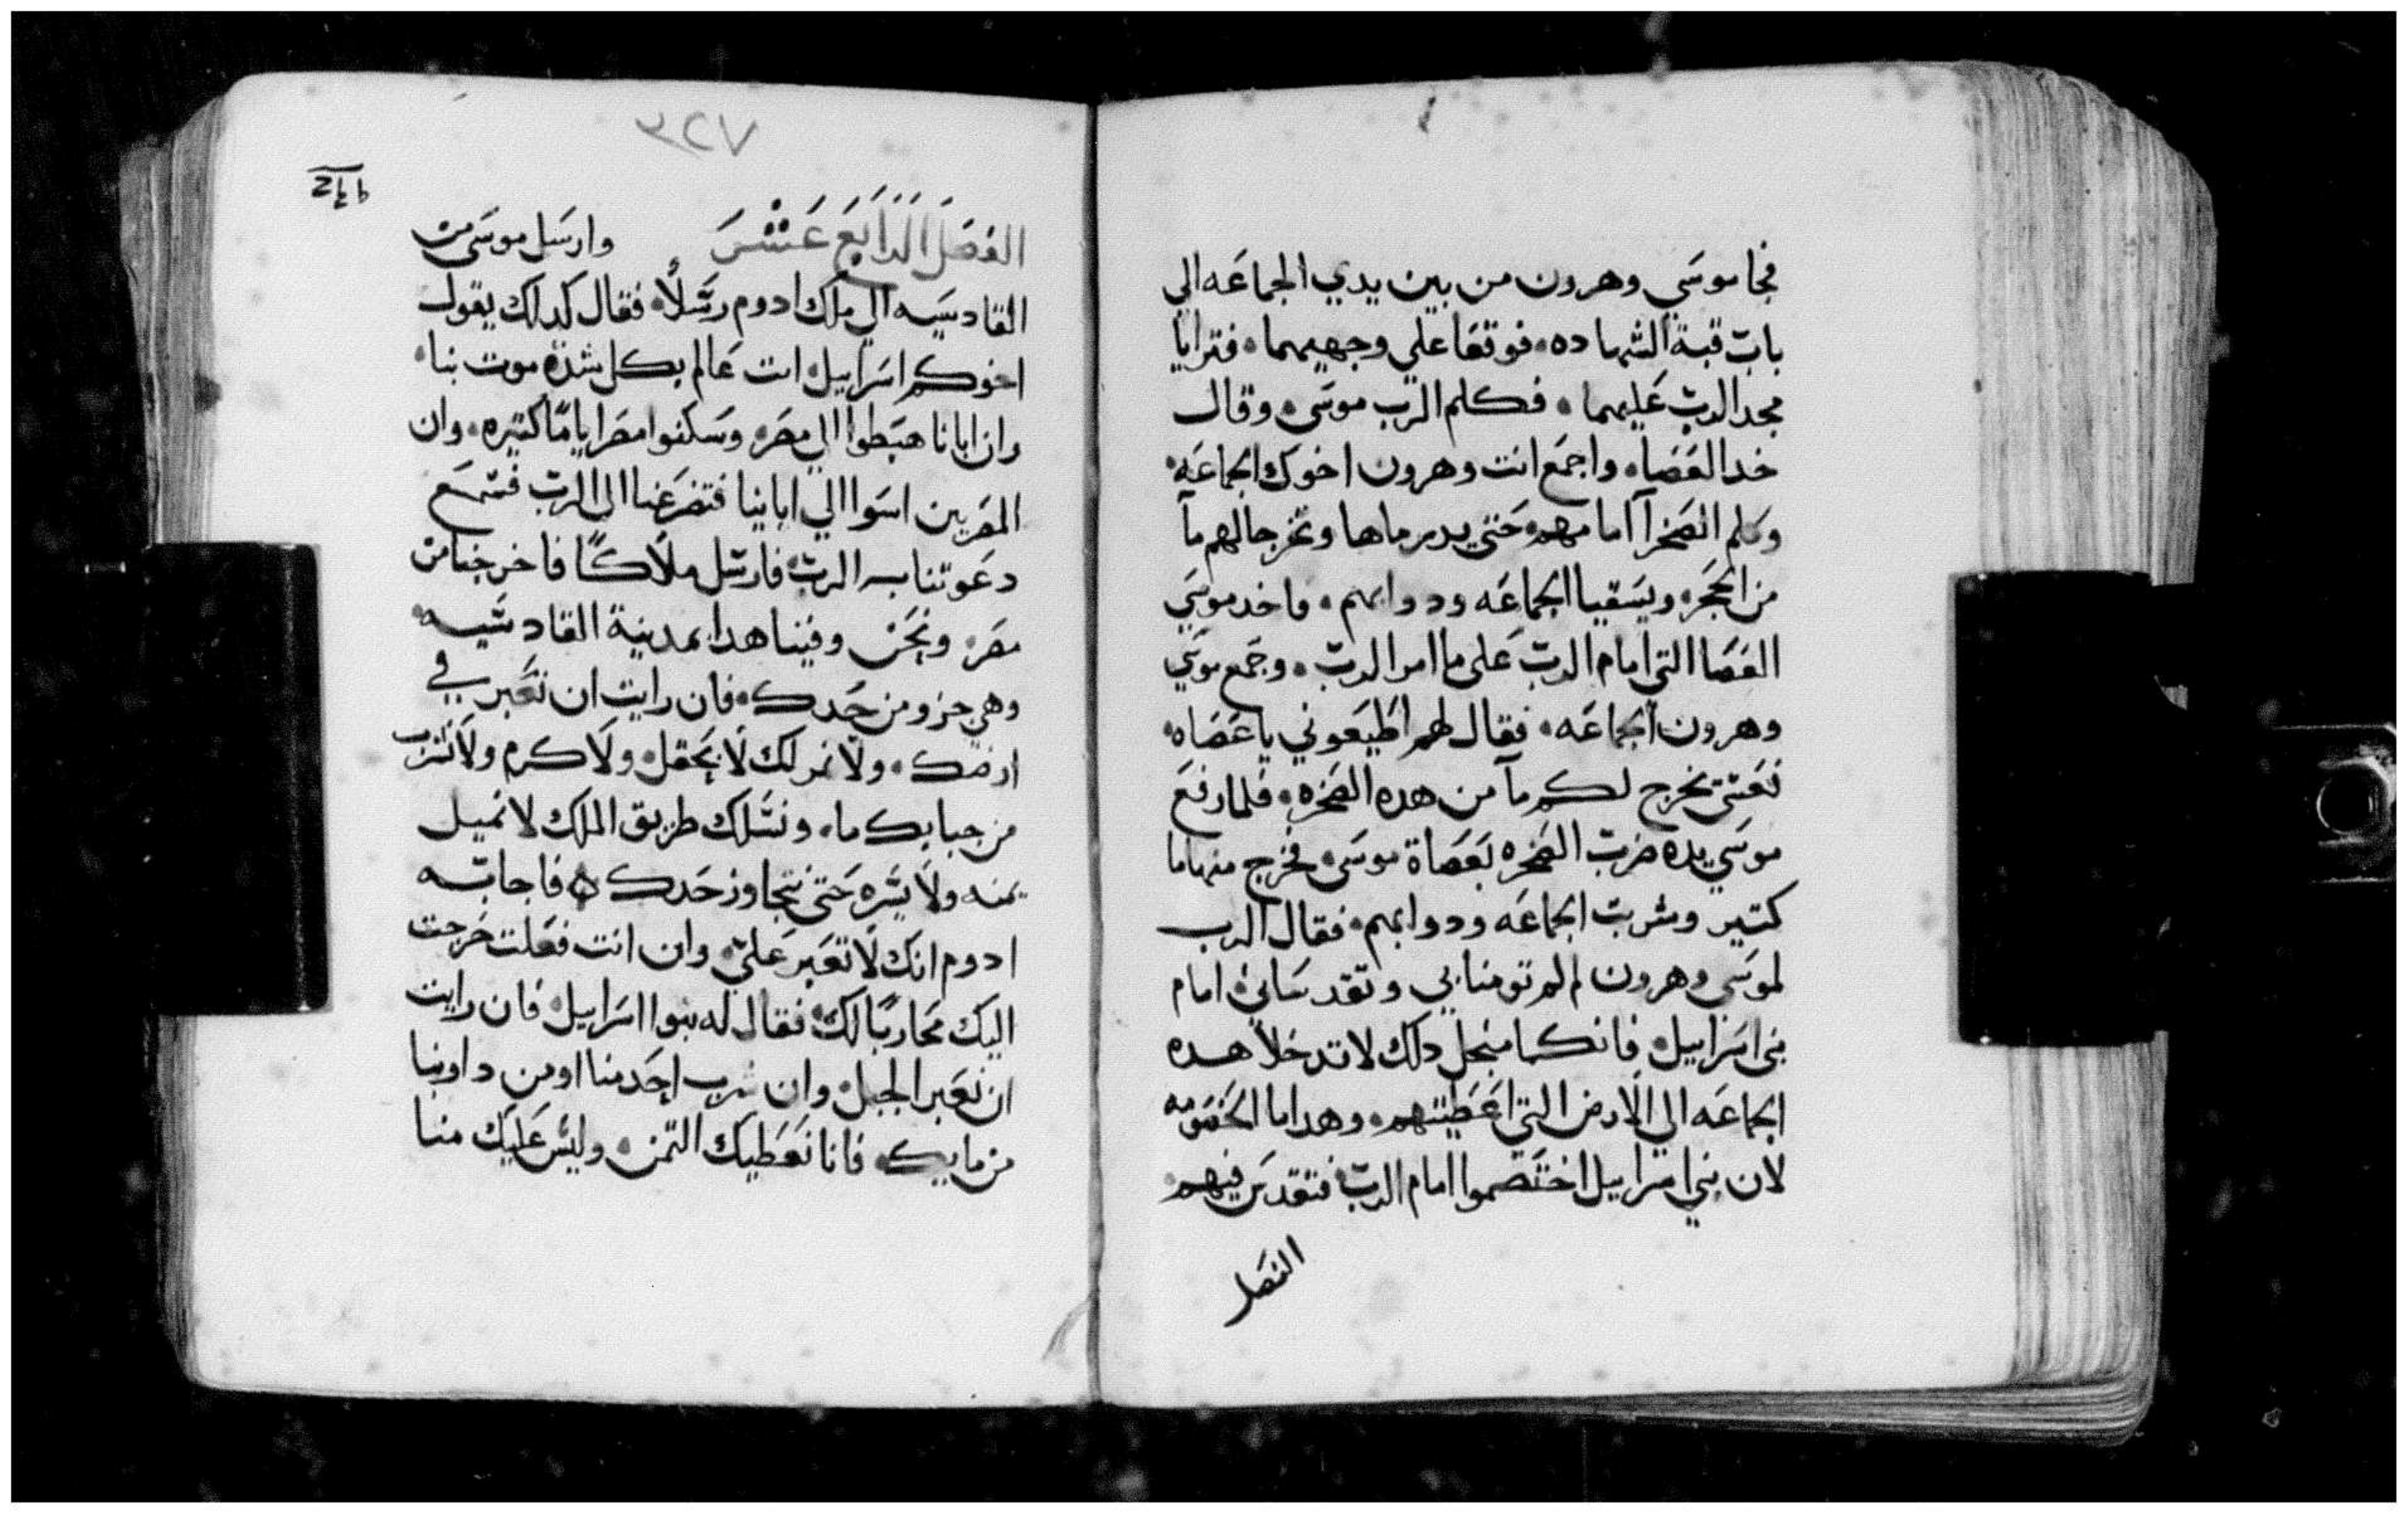 فجا موسي وهرون من بين يدي الجماعه الي
باب قبة الشهاده، فوقعا علي وجهيهما، فترايا
مجد الرب عليهما، فكلم الرب موسي، وقال
خد العصاه، واجمع انت وهرون اخوك الجماعه،
وكلم الصخرا امامهم، حتي يدير ماها وتخرجا لهم مآ
من الحجر، ويسقيا الجماعه ودوابهم، فاخد موسي
العصا التي امام الرب علي ما امر الرب، وجمع موسي
وهرون الجماعه، فقال لهم اطيعوني يا عصاه،
نعني نخرج لكم مآ من هده الصخره، فلما رفع
موسي يده ضرب الصخره بعصاة موسي، فخرج منها ما
كتير وشربت الجماعه ودوابهم، فقال الرب
لموسي وهرون لم لم تومنا بي وتقدساني، امام
بني اسراييل، فانكما منجل دلك لا تدخلا هده
الجماعه الي الارض التي اعطيتهم، وهدا ما الخصومه
لان بني اسراييل اختصموا امام الرب، فتقدس فيهم،
الفصل
٣٢٧
الفصل الرابع عشر وارسل موسي من
القادسيه الي ملك ادوم رسلاً، فقال كدلك يقول
اخوكم اسراييل، انت عالم بكل شده موت بنا،
وان ابانا هبطوا الي مصر، وسكنوا مصر اياماً كتيره، وان
المصريين اسوا الي اباينا فتضرعنا الي الرب فسمع
دعوتنا الرب، فارسل ملاكاً فاخرجنا من
مصر، ونحن وفينا هدا بمدينة القادسيه،
وهي جزو من حدك، فان رايت ان نعبر في
ارضك، ولا نمر لك لا بحقل، ولا كرم ولا نشرب
من جبابك ما، ونسلك طريق الملك لا نميل
يمنه ولا يسره حتي نتجاوز حدك ه فاجابه
ادوم انك لا تعبر علي، وان انت فعلت خرجت
اليك محارباً لك، فقال له بنوا اسراييل، فان رايت
ان نعبر الجبل، وان شرب احد منا او من دوابنا
من مايك، فانا نعطيك التمن، وليس عليك منا